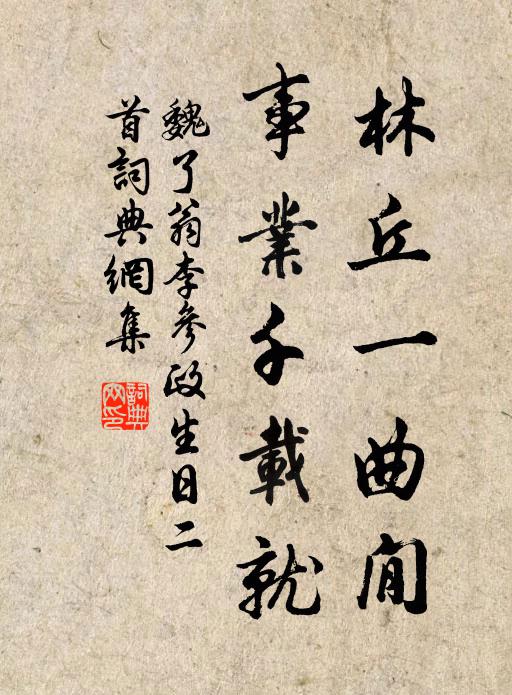 林丘一曲閒
事業千載就
魏了翁李參政生日二
首詞典網集
詞典網印